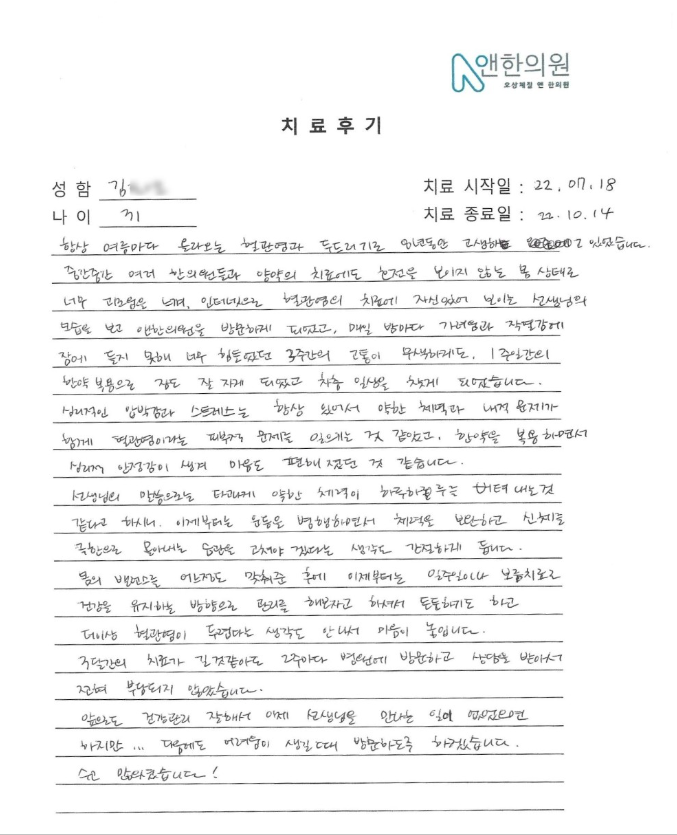 앤한의원
오상체질 앤 한의원
치료후기
성함 김
나이 31
치료 시작일 : 22. 07. 18
치료 종료일 : 22. 10. 14
항상 여름마다 올라오는 혈관염과 두드러기로 고생하 있었습니다.
중간중간 여러 한의원들과 양약의 치료에도 호전을 보이지 않는 몸 상태로
너무 괴로움을 느끼며, 인터넷으로 혈관염의 치료에 자신있어 보이는 선생님의
모습을 보고 앤한의원을 방문하게 되었고, 매일 밤마다 가려움과 작열감에
잠에 들지 못해 너무 힘들었던 3주간의 고통이 무색하게도, 1주일간의
한약 복용으로 잠도 잘 자게 되었고 차츰 일상을 찾게 되었습니다.
심리적인 압박감과 스트레스는 항상 있어서 약한 체력과 내적 문제가
함께 혈관염이라는 피부적 문제를 일으키는 것 같았고, 한약을 복용하면서
심리적 안정감이 생겨 마음도 편해졌던 것 같습니다.
선생님의 말씀으로는 타고나게 약한 체력이 하루하루를 버텨내는것
같다고 하시니, 이제부터는 운동을 병행하면서 체력을 보완하고 신체를
극한으로 몰아내는 습관을 고쳐야 겠다는 생각도 간절하게 듭니다.
몸의 밸런스를 어느정도 맞춰준 후에 이제부터는 일주일이나 보름치료로
건강을 유지하는 방향으로 관리를 해보자고 하셔서 든든하기도 하고
더이상 혈관염이 두렵다는 생각도 안나서 마음이 놓입니다.
3달간의 치료가 길것같아도 2주마다 병원에 방문하고 상담을 받아서
전혀 부담되지 않았습니다.
앞으로도 건강관리 잘해서 이제 선생님을 만나는 일이 없었으면
하지만... 다음에도 어려움이 생길때 방문하도록 하겠습니다.
수고 많으셨습니다!